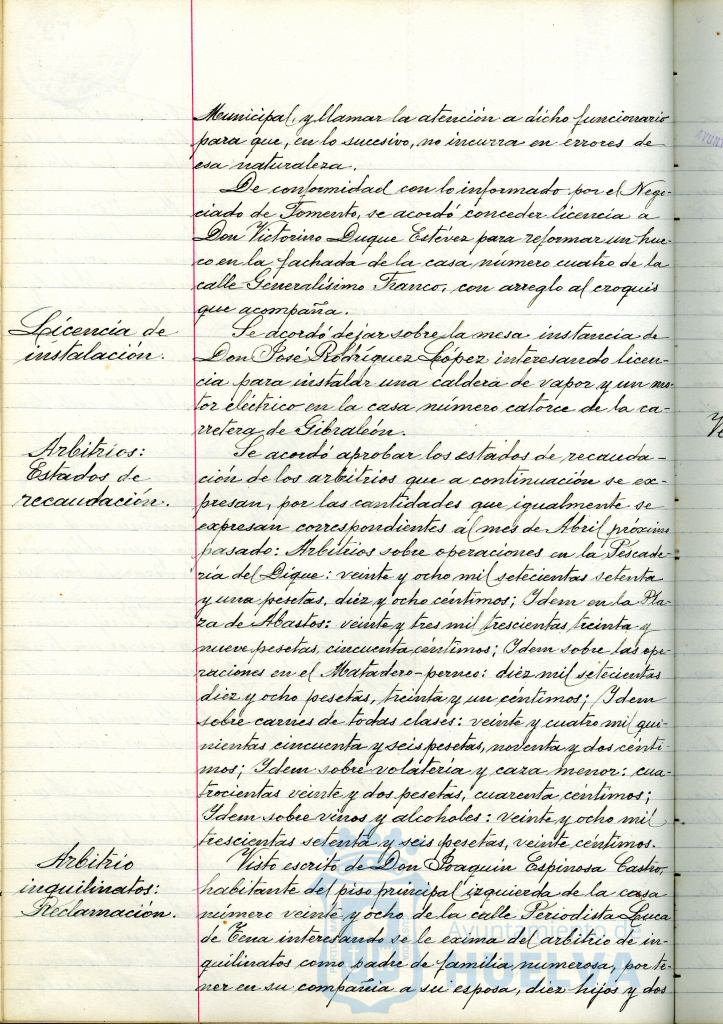 Municipal, y llamar la atención a dicho funcionario
para que, en lo sucesivo, no incurra en errores de
esa naturaleza.
De conformidad con lo informado por el Nego-
ciado de Fomento, se acordó conceder licencia a
Don Victorino Duque Estévez para reformar un hue-
co en la fachada de la casa número cuatro de la
calle Generalísimo Franco, con arreglo al croquis
que acompaña.
Licencia de
instalación.
Se acordó dejar sobre la mesa instancia de
Don José Rodríguez López interesando licen-
cia para instalar una caldera de vapor y un mo-
tor eléctrico en la casa número catorce de la ca-
rretera de Gibraleón.
Arbitrios:
Estados de
recaudación.
Se acordó aprobar los estados de recauda-
ción de los arbitrios que a continuación se ex-
presan, por las cantidades que igualmente se
expresan correspondientes al mes de Abril próximo
pasado: Arbitrios sobre operaciones en la Pescade-
ría del Dique: veinte y ocho mil setecientas setenta
y una pesetas, diez y ocho céntimos; Idem en la Pla-
za de Abastos: veinte y tres mil trescientas treinta y
nueve pesetas, cincuenta céntimos; Idem sobre las ope-
raciones en el Matadero-perneo: diez mil setecientas
diez y ocho pesetas, treinta y un céntimos; Idem
sobre carnes de todas clases: veinte y cuatro mil qui-
nientas cincuenta y seis pesetas, noventa y dos cénti-
mos; Idem sobre volatería y caza menor: cua-
trocientas veinte y dos pesetas, cuarenta céntimos;
Idem sobre vinos y alcoholes: veinte y ocho mil
trescientas setenta y seis pesetas, veinte céntimos.
Arbitrio
inquilinatos:
Reclamación.
Visto escrito de Don Joaquín Espinosa Castro,
habitante del piso principal izquierda de la casa
número veinte y ocho de la calle Periodista Luca
de Tena interesando se le exima del arbitrio de in-
quilinatos como padre de familia numerosa, por te-
ner en su compañía a su esposa, diez hijos y dos
Ayuntamiento de
HUELVA